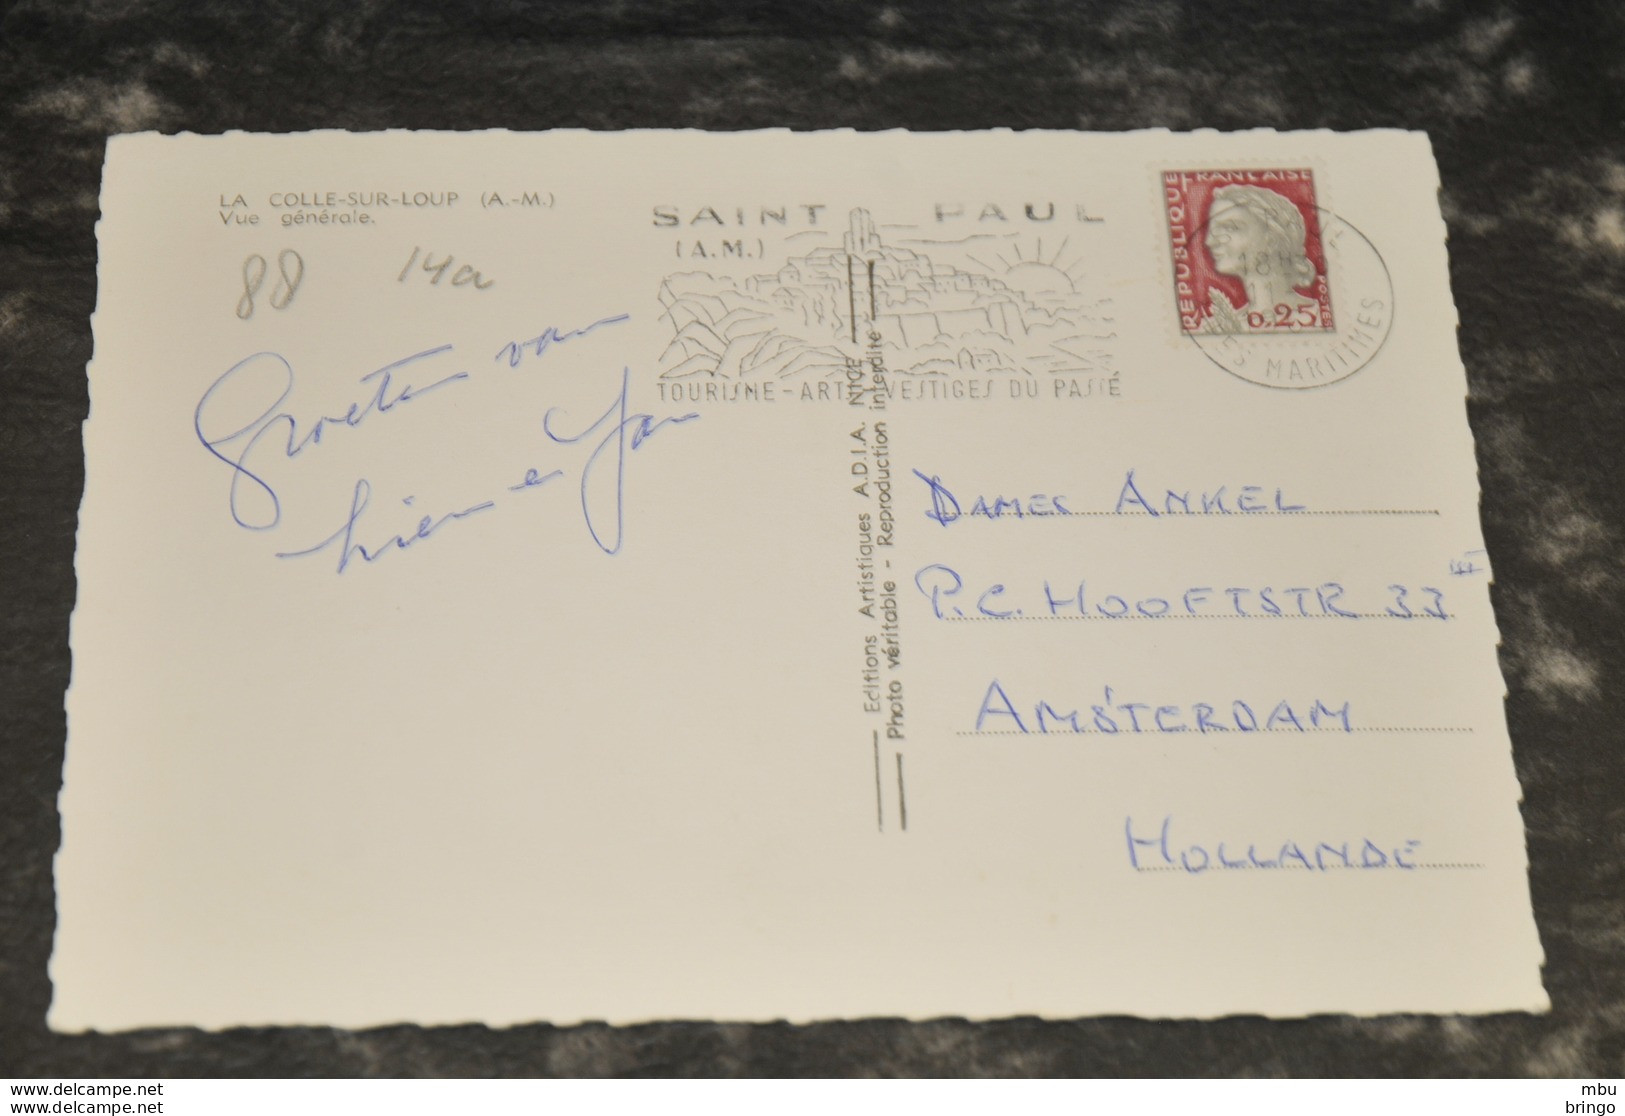 LA COLLE-SUR-LOUP (A.-M.)
Vue générale.
88 14a
Groeten van
hier en Jan
SAINT PAUL
(A.M.)
TOURISME - ARTS VESTIGES DU PASSÉ
REPUBLIQUE FRANÇAISE
POSTES
0,25
18H
11
MARITIMES
Editions Artistiques A.D.I.A. NICE
Photo véritable - Reproduction interdite
DAMES ANKEL
P.C. HOOFTSTR 33
AMSTERDAM
HOLLANDE
www.delcampe.net
www.delcampe.net
mbu
bringo